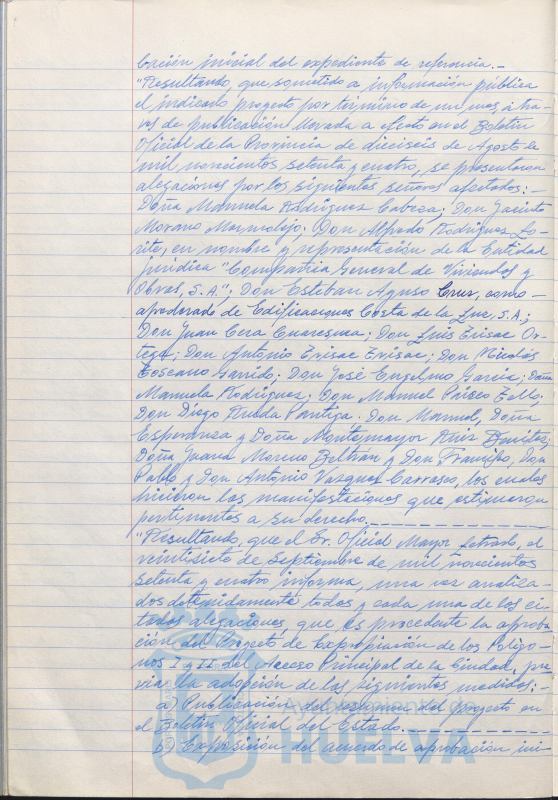 bación inicial del expediente de referencia.-
"Resultando, que sometido a información pública
el indicado proyecto por término de un mes, a tra-
vés de publicación llevada a efecto en el Boletín
Oficial de la Provincia de dieciseis de Agosto de
mil novecientos setenta y cuatro, se presentaron
alegaciones por los siguientes señores afectados:-
Doña Manuela Rodríguez Cabeza; Don Jacinto
Morano Marmolejo; Don Alfredo Rodríguez Lo-
rite, en nombre y representación de la Entidad
jurídica "Compañía General de Viviendas y
Obras, S.A."; Don Esteban Ayuso Cruz, como-
apoderado de Edificaciones Costa de la Luz, S.A.;
Don Juan Cera Cuaresma; Don Luis Erisac Or-
tega; Don Antonio Erisac Erisac; Don Nicolás
Toscano Garrido; Don José Engelmo García; Doña
Manuela Rodríguez; Don Manuel Tello;
Don Diego Rueda Pantiga. Don Manuel, Doña
Esperanza y Doña Montemayor Ruiz Benitez;
Doña Juana Moreno Beltrán y Don Francisco, Don
Pablo y Don Antonio Vazquez Carrasco, los cuales
hicieron las manifestaciones que estimaron
pertinentes a su derecho.
"Resultando, que el Sr. Oficial Mayor Letrado, el
veintisiete de Septiembre de mil novecientos
setenta y cuatro, informa, una vez analiza-
dos detenidamente todas y cada una de las ci-
tadas alegaciones, que es procedente la aproba-
ción del Proyecto de Expropiación de los Polígo-
nos I y II del Acceso Principal de la Ciudad, pre-
via la adopción de las siguientes medidas:-
a) Publicación del resumen del proyecto en
el Boletín Oficial del Estado.
b) Exposición del acuerdo de aprobación ini-
HUELVA